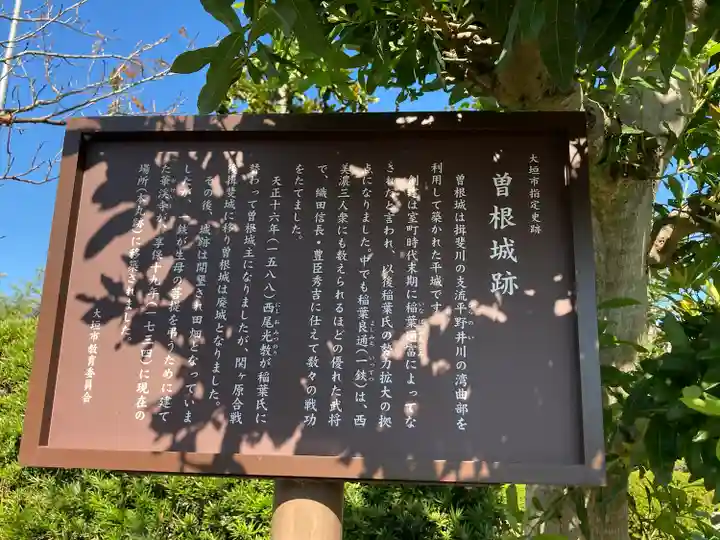 大垣市指定史跡
曽根城跡
曽根城は揖斐川の支流平野井川の湾曲部を
利用して築かれた平城です。
は室町時代末期に稲葉通富によってな
されたと言われ、以後稲葉氏の勢力拡大の拠
点になりました。中でも稲葉良通(一鉄)は、西
美濃三人衆にも数えられるほどの優れた武将
で、織田信長・豊臣秀吉に仕えて数々の戦功
をたてました。
天正十六年(一五八八)西尾光教が稲葉氏に
替わって曽根城主になりましたが、関ヶ原合戦
後揖斐城に移り曽根城は廃城となりました。
その後、城跡は開墾され田畑となっていま
したが、一鉄が生母の菩提を弔うために建て
た華渓寺が、享保十九年(一七三四)に現在の
場所(本丸跡)に移築されました。
大垣市教育委員会